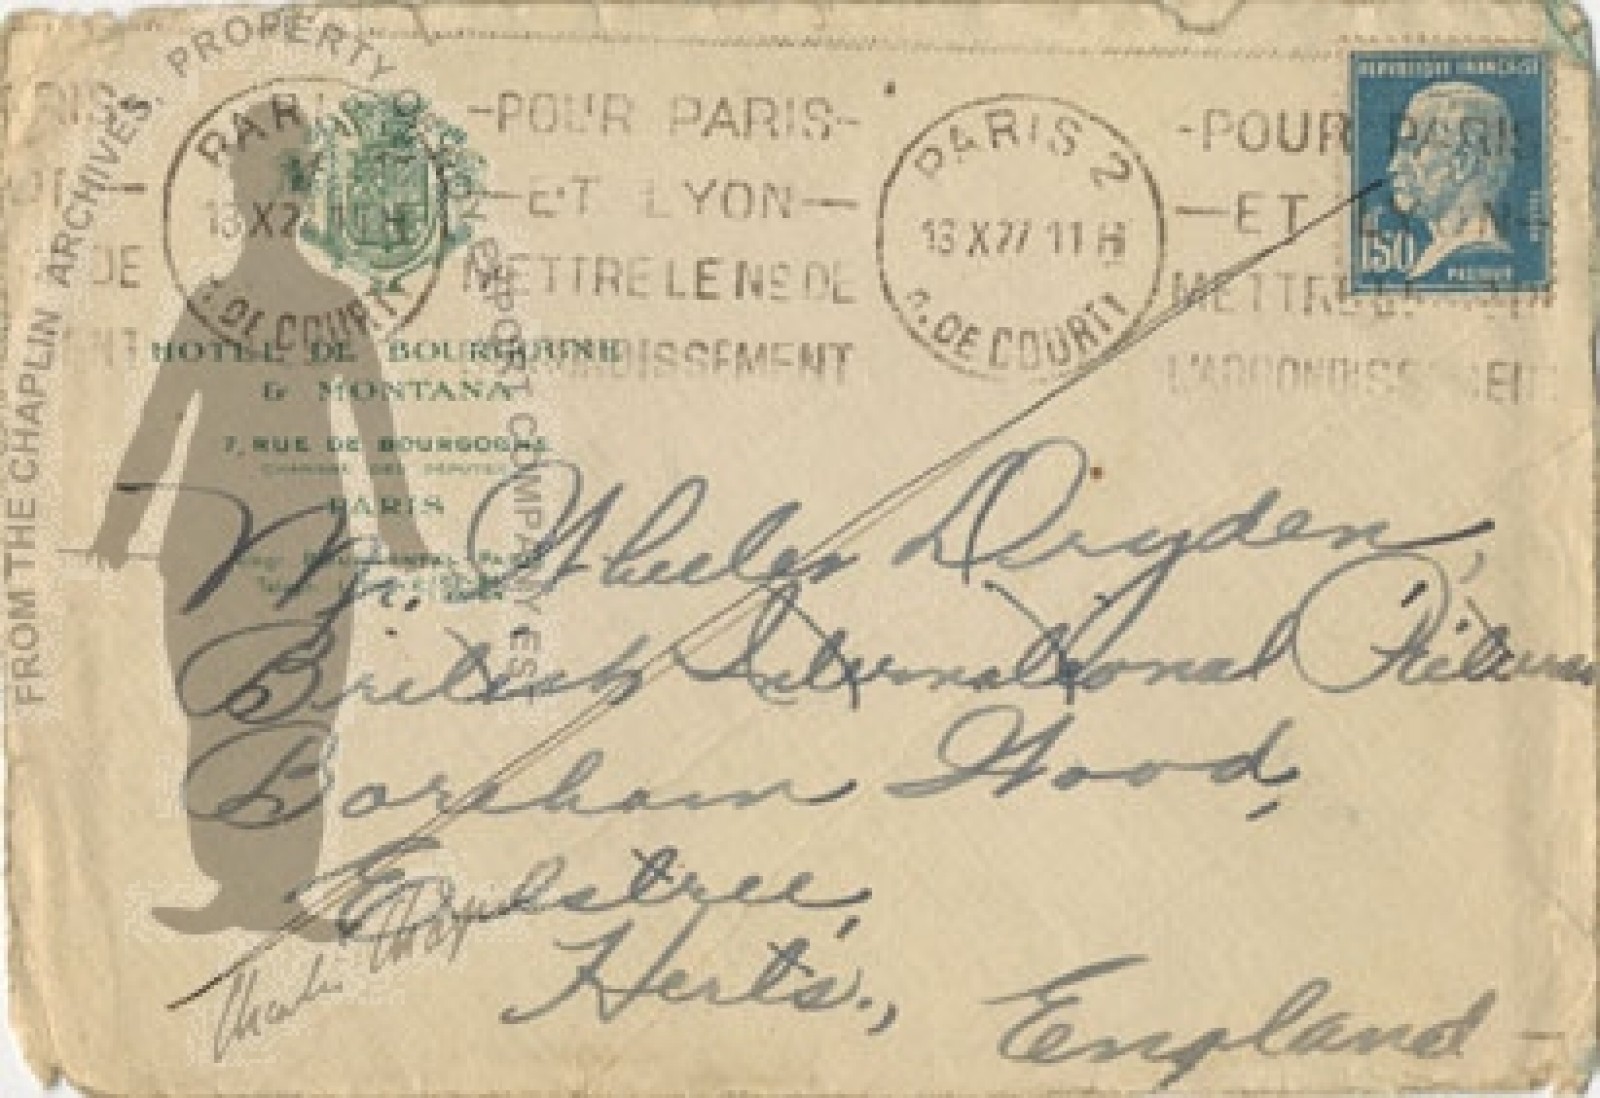 FROM THE CHAPLIN ARCHIVES. PROPERTY ROY EXPORT COMPANY EST.
PARIS
13 X 27 11 H
R. DE COURTY
-POUR PARIS-
—ET LYON—
METTRE LE No DE
L'ARRONDISSEMENT
PARIS 2
13 X 27 11 H
R. DE COURTY
-POUR PARIS
—ET LYON—
METTRE LE
L'ARRONDISSEMENT
REPUBLIQUE FRANÇAISE
1F50
PASTEUR
HOTEL DE BOURGOGNE
& MONTANA
7, RUE DE BOURGOGNE
CHAMBRE DES DÉPUTÉS
PARIS
Mr. Wheeler Dryden,
British International Pictures
Boreham Wood,
Elstree,
Herts.,
England
Charlie Chaplin